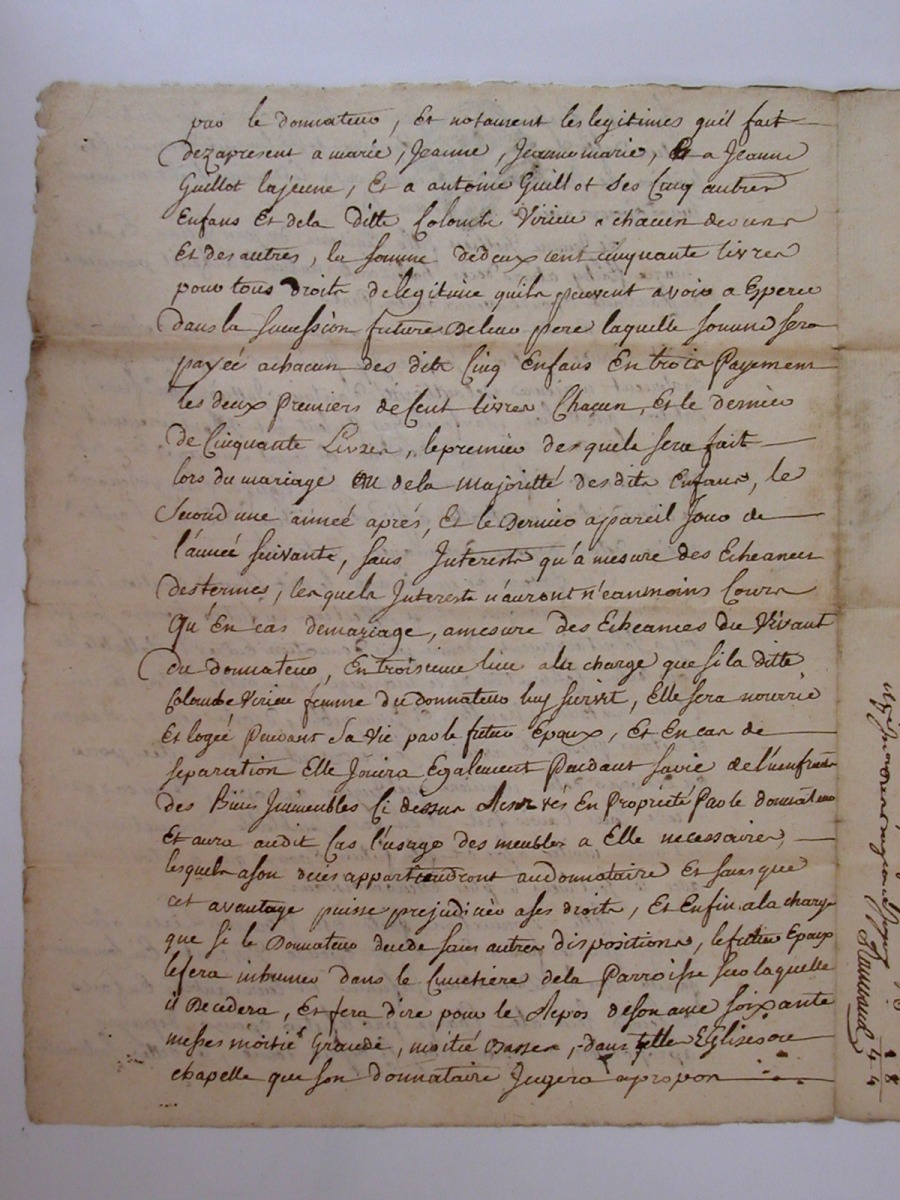 par le donnateur, Et notament les legitimes quil fait
dezapresent a marie, Jeanne, Jeanne marie, Et a Jeanne
Guillot lajeune, Et a antoine Guillot Ses Cinq autres
Enfans Et dela ditte Colombe Virieu a chacun des uns
Et des autres, la somme dedeux cent cinquante livres
pour tous droits delegitime quils peuvent avoir a Esperer
dans la sucession future deleur pere laquelle somme sera
payée achacun des dits Cinq Enfans En trois Payemens
les deux Premiers de Cent livres Chacun, Et le dernier
de Cinquante Livres, lepremier desquels sera fait
lors du mariage ou dela Majoritté desdits Enfans, le
Second une année aprés, Et le Dernier apareil Jour de
l'année suivante, sans Interests qu'a mesure des Echeances
destermes, lesquels Interests n'auront n'eanmoins Cours
Qu'En cas demariage, amesure des Echeances du Vivant
du donnateur, En troisieme lieu ala charge que si la ditte
Colombe Virieu femme du donnateur luy survit, Elle sera nourrie
Et logée Pendant Sa Vie par le futur Epoux, Et En cas de
separation Elle Jouira Egalement Pendant savie de l'usufruit
des Biens Immeubles Ci dessus Reservés En Proprieté Par le donnateur
Et aura audit Cas l'usage des meubles a Elle necessaires,
lesquels ason decés appartiendront audonnataire Et sans que
cet avantage puisse prejudicier ases droits, Et Enfin ala charge
que si le Donnateur decede sans autres dispositions, le futur Epoux
le fera inhumer dans le Cimetiere dela Parroisse sur laquelle
il Decedera, Et fera dire pour le Repos deson ame soixante
messes moitié Grande, moitié Basses, dans telle Eglise ou
chapelle que son donnataire Jugera apropos